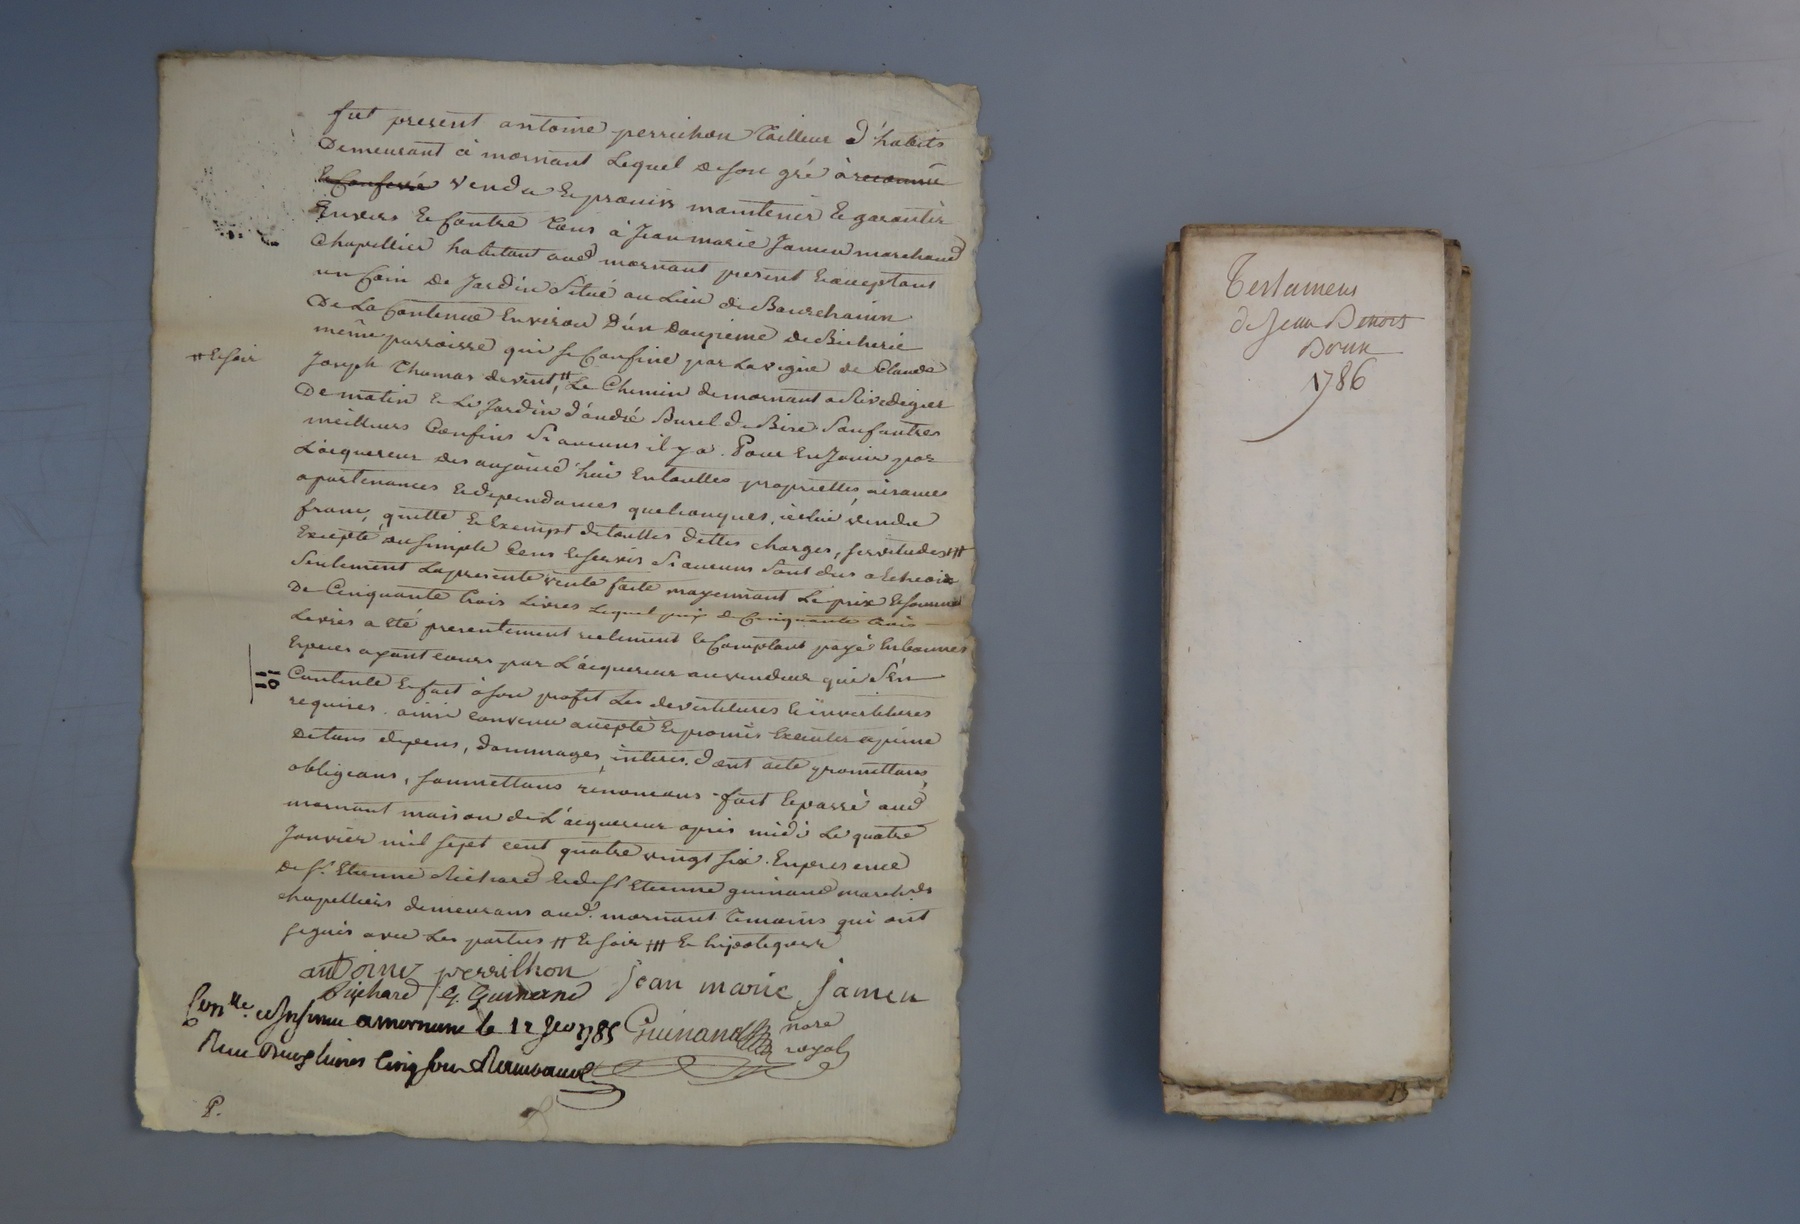 fut present antoine perrichon Tailleur d'habits
Demeurant à mornant Lequel de son gré à reconnû
& Confessé vendu & promis maintenir & garantir
Envers & Contre tous à Jean marie Jameu marchand
Chapellier habitant aud mornant present & acceptant
un Coin de Jardin Situé au Lieu de Bourchanin
De La Contenue Environ D'un Douzieme de Bicherie
même parroisse qui se Confine par La vigne de Claude
# & soir
Joseph Thomas de vent, # Le Chemin de mornant a Rivedegier
De matin & Le Jardin d'andré Burel de Bize Sauf autres
meilleurs Confins Si aucuns il y a. Pour En Jouir par
L'acquereur des aujourd'hui En touttes proprietes, aisances
apartenances & dependances quelconques, icelui vendu
franc, quitte & Exempt de touttes dettes charges, servitudes ###
Excepté du simple Cens & servis Si aucuns Sont dus
Seulement La presente vente faite moyennant Le prix & somme
De Cinquante trois Livres Lequel prix de Cinquante trois
Livres a Eté presentement reelement & Comptant payé En bonnes
Especes ayant cours par L'acquereur au vendeur qui S'En
Contente & fait à son profit Les devestitures & investitures
requises. ainsi convenu accepté & promis Executer a peine
De tous depens, dommages, interes. dont acte promettans,
obligeans, soumettans renonceans. fait & passé aud
mornant maison de L'acquereur apres midi Le quatre
Janvier mil sept cent quatre vingt six. En presence
de Sr. Etienne Richard & de Sr Etienne guinand march.ds
chapelliers demeurans aud. mornant Temoins qui ont
signés avec Les parties # & soir ### & hipoteques
antoine perrichon Jean marie Jameu
Richard G. Guinand
Conlle. & Insinué a mornant le 12 Guinand nore
royal
Reçu livres cinq sous
P.
Testament
de Jean Benoit
Doun
1786